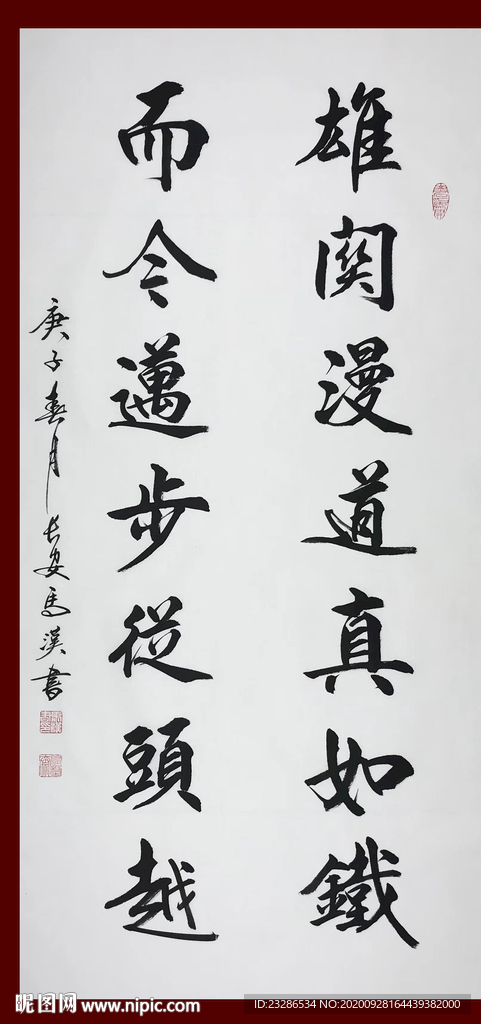 雄関漫道真如鐵
而今邁步從頭越
庚子春月長安馬漢書
昵图网 www.nipic.com
ID:23286534 NO:20200928164439382000